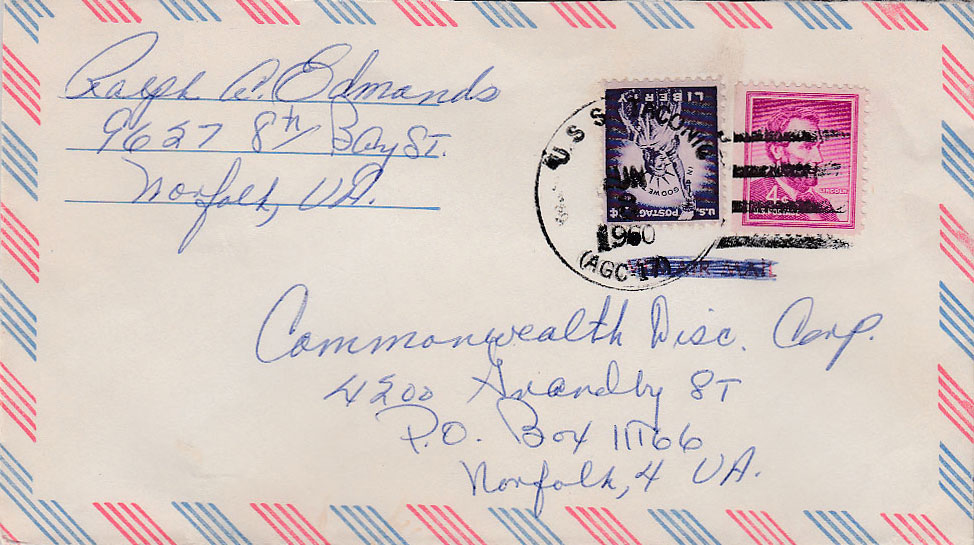 Ralph A. Edmands
9627 8th Bay St.
Norfolk, VA.
U.S.S. TACONIC
JUN
1960
(AGC-17)
LIBERTY
IN GOD WE TRUST
U.S. POSTAGE 3¢
4¢
LINCOLN
U.S. POSTAGE
AIR MAIL
Commonwealth Disc. Corp.
4200 Granby ST
P.O. Box 11766
Norfolk, 4 VA.